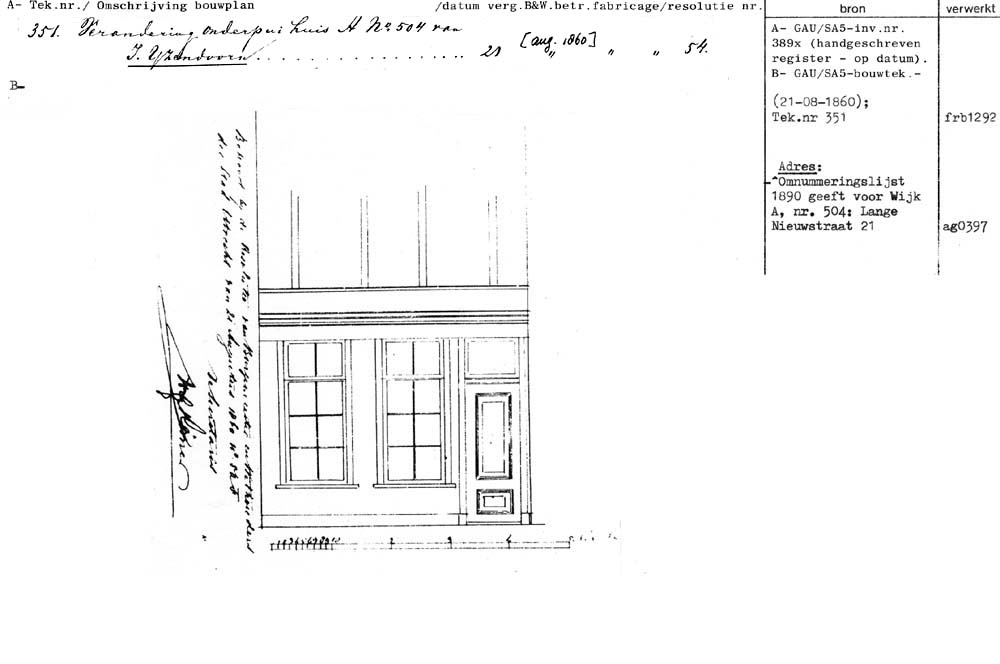 A- Tek.nr./ Omschrijving bouwplan /datum verg.B&W.betr.fabricage/resolutie nr.
bron
verwerkt
351. Verandering onderpui huis A No 504 van
J. Yzendoorn. . . . . . . . . . . . . . . . 21 [aug. 1860] " " " 54.
B-
A- GAU/SA5-inv.nr.
389x (handgeschreven
register - op datum).
B- GAU/SA5-bouwtek.-
(21-08-1860);
Tek.nr 351
frb1292
Adres:
-^Omnummeringslijst
1890 geeft voor Wijk
A, nr. 504: Lange
Nieuwstraat 21
ag0397
Behoord bij de Resolutie van Burgemeester en Wethouders
der Stad Utrecht van 21 Augustus 1860 No
de Secretaris